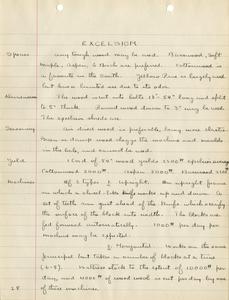 EXCELSIOR.
Species Any tough wood may be used. Basswood, Soft
Maple, Aspen, & Birch are preferred. Cottonwood is
a favorite in the South. Yellow Pine is largely used
but has a limited use due to its odor.
The wood went into bolts 18"-54" long and split
to 5" thick. Round wood down to 3" may be used.
The species should are
Seasoning Air dried wood is preferable, being more elastic.
Green or damp wood clogs the machine and moulds
in the bale, and cannot be used.
Yield 1 Cord of 54" wood yields 2200# Excelsior
Cottonwood 2000# Aspen 2000# Basswood
Machines Of 2 types 1. Upright. An upright frame
in which a chisel like knife works up and down. A
set of teeth run just ahead of the knife which
the surface of the block into widths. The blocks are
fed forward automatically. 1000# per day per
machine may be expected.
2. Horizontal. Works on the same
principal but takes a number of blocks at a time
(6-8). Waters stock to the extent of 10000# per
day and 4000# of wood wool is out per day by use
of these machines.
28